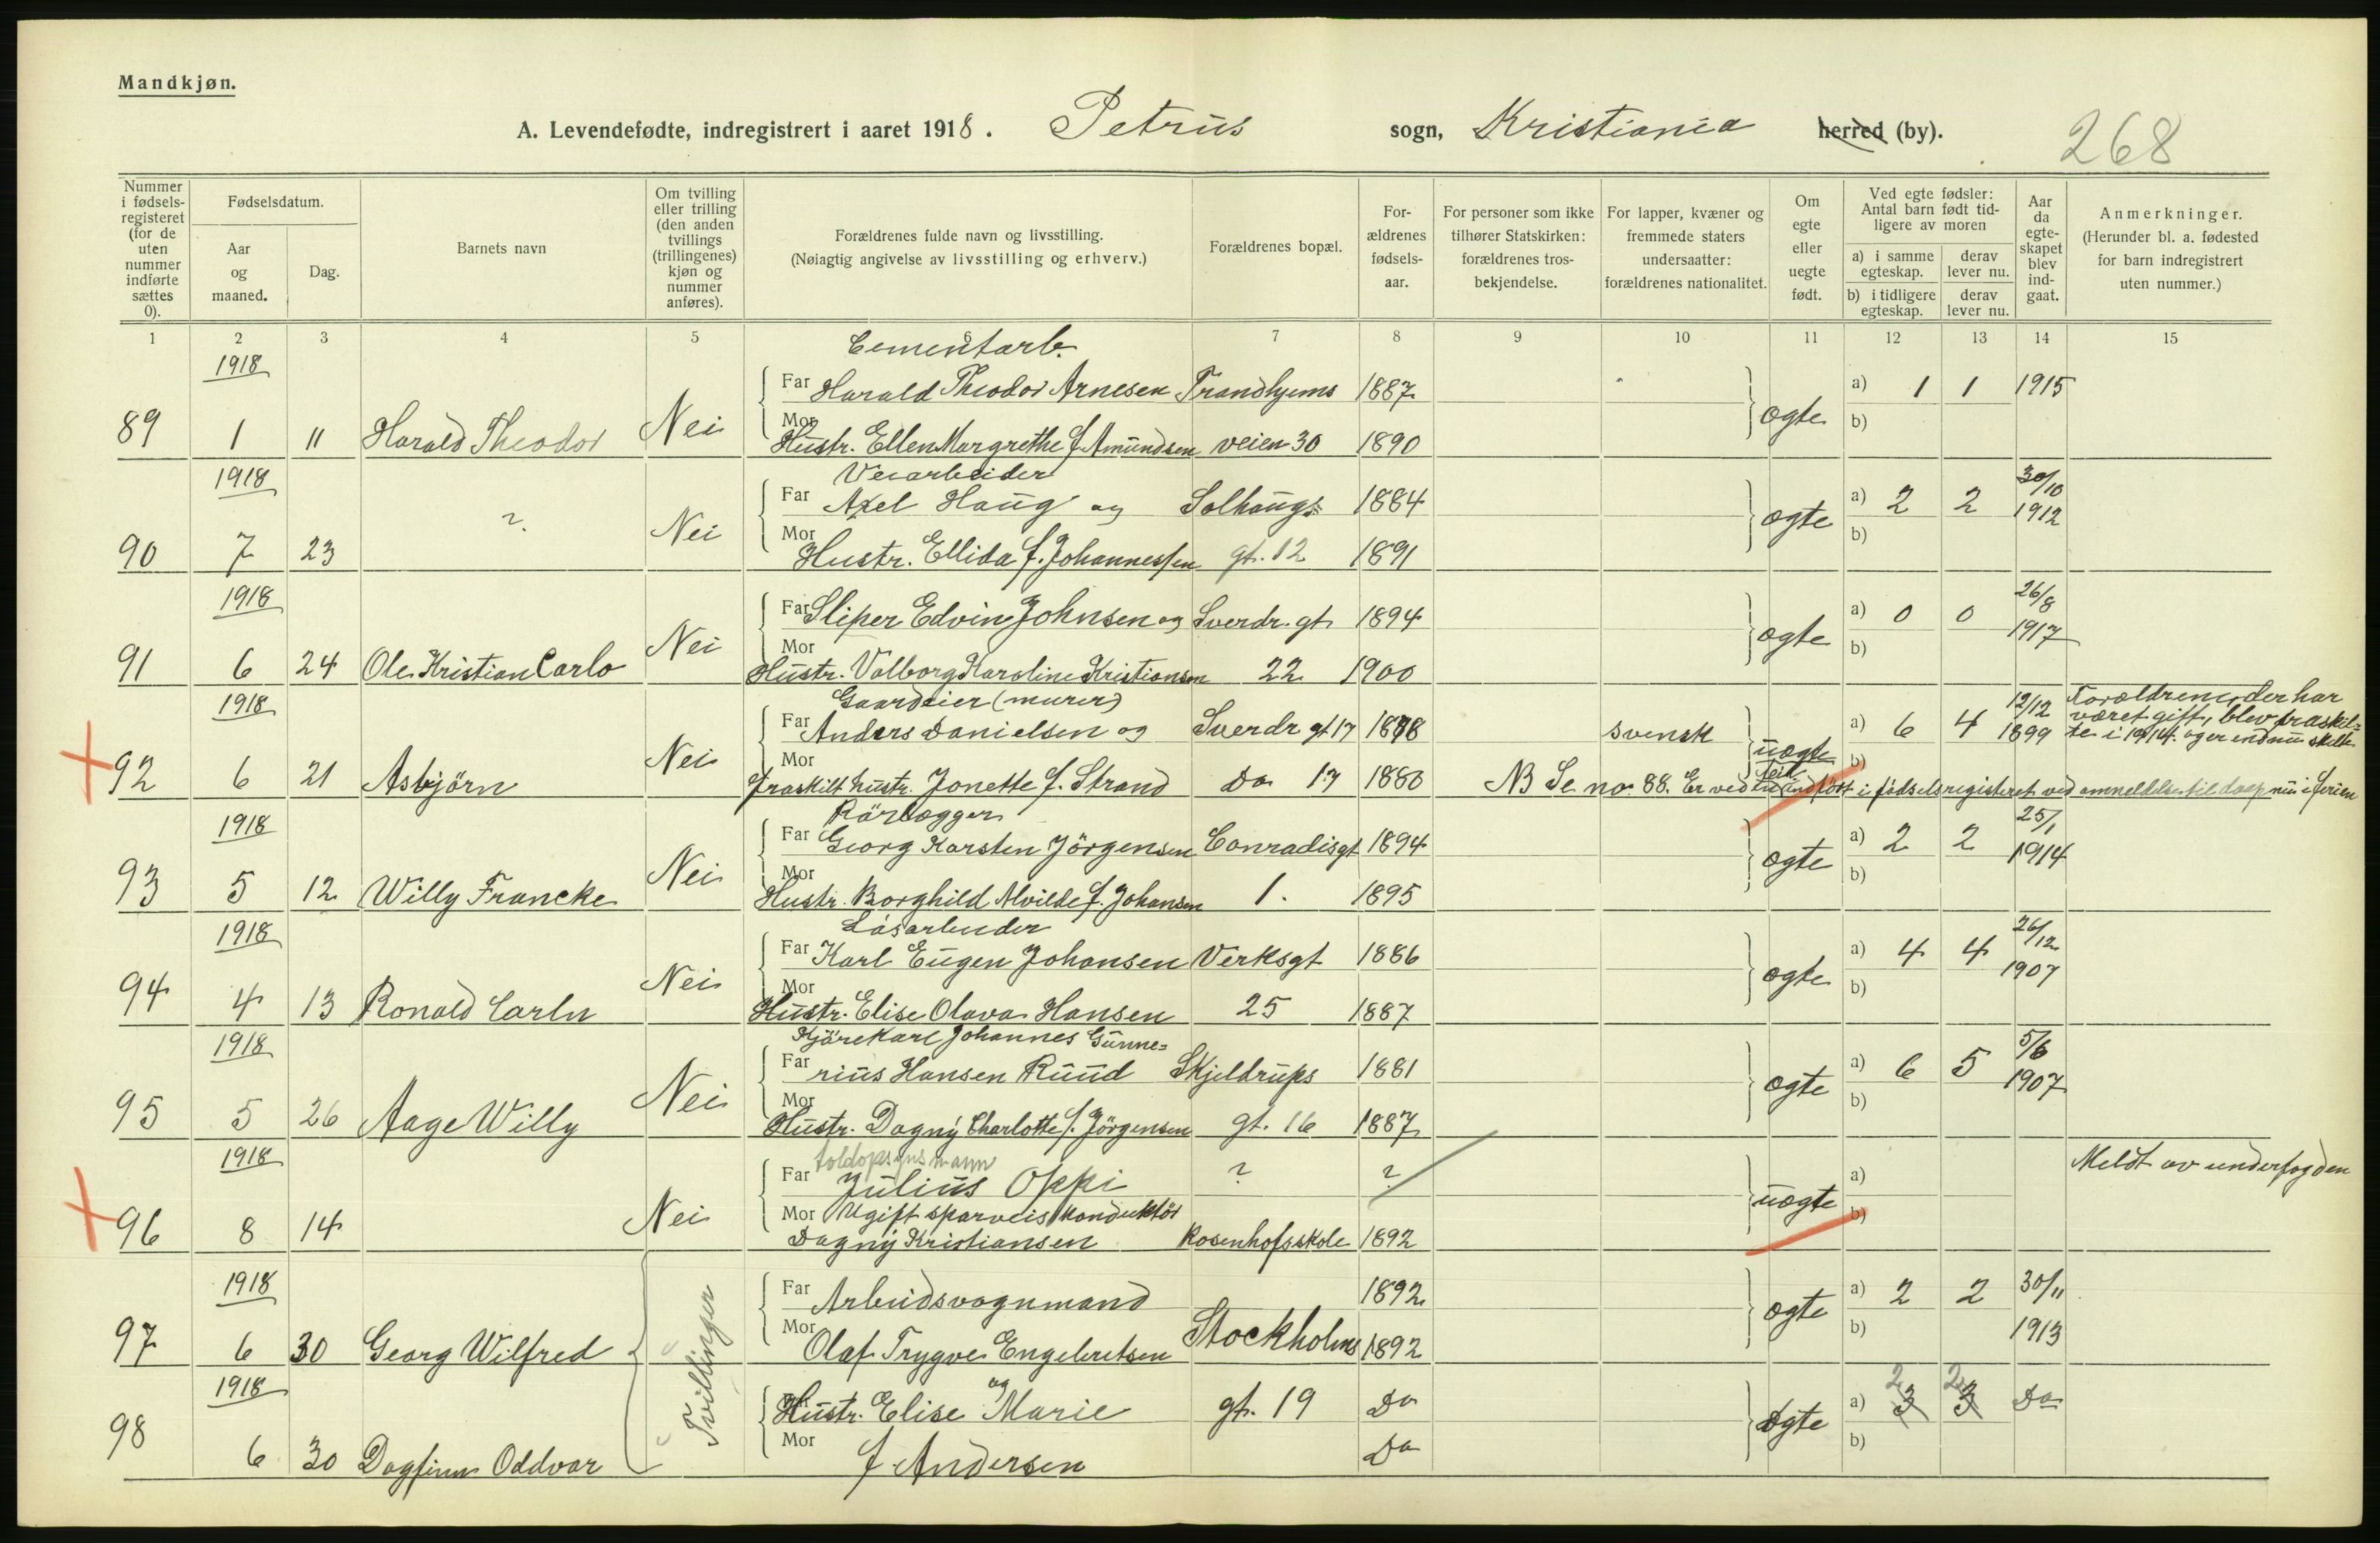 Mandkjøn.
A. Levendefødte, indregistrert i aaret 1918. Petrus sogn, Kristiania herred (by). 268
Nummer i fødsels-registeret (for de uten nummer indførte sættes 0).
Fødselsdatum.
Aar og maaned.
Dag.
Barnets navn
Om tvilling eller trilling (den anden tvillings (trillingenes) kjøn og nummer anføres).
Forældrenes fulde navn og livsstilling.
(Nøiagtig angivelse av livsstilling og erhverv.)
Forældrenes bopæl.
For-ældrenes fødsels-aar.
For personer som ikke tilhører Statskirken: forældrenes tros-bekjendelse.
For lapper, kvæner og fremmede staters undersaatter: forældrenes nationalitet.
Om egte eller uegte født.
Ved egte fødsler: Antal barn født tid-ligere av moren
a) i samme egteskap.
derav lever nu.
b) i tidligere egteskap.
derav lever nu.
Aar da egte-skapet blev ind-gaat.
Anmerkninger.
(Herunder bl. a. fødested for barn indregistrert uten nummer.)
1 2 3 4 5 6 7 8 9 10 11 12 13 14 15
1918 Cementarb.
Far Harald Theodor Arnesen Trondhjems 1887 a) 1 1 1915
89 1 11 Harald Theodor Nei Mor Hustr. Ellen Margrethe f. Amundsen veien 30 1890 ægte b)
1918 Veiarbeider
Far Axel Haug og Solhaugs 1884 a) 2 2 30/10 1912
90 7 23 ? Nei Mor Hustr. Ellida f. Johannessen gt. 12 1891 ægte b)
1918 Far Sliper Edvin Johnsen og Sverdr. gt 1894 a) 0 0 26/8 1917
91 6 24 Ole Kristian Carlo Nei Mor Hustr. Valborg Karoline Kristiansen 22 1900 ægte b)
1918 Gaardeier (murer)
Far Anders Danielsen og Sverdr gt 17 1878 svensk a) 6 4 12/12 1899 Forældrene, der har
været gift, blev fraskil=
te i 1914 og er endnu skilte
92 6 21 Asbjörn Nei Mor fraskilt hustr. Jonette f. Strand Do 17 1880 uægte b)
NB Se no. 88. Er ved feil indfört i födselsregisteret ved anmeldelse til daap nu i ferien
1918 Rörlægger
Far Georg Karsten Jörgensen Conradisgt 1894 a) 2 2 25/1 1914
93 5 12 Willy Francke Nei Mor Hustr. Borghild Alvilde f. Johansen 1. 1895 ægte b)
1918 Løsarbeider
Far Karl Eugen Johansen Verksgt 1886 a) 4 4 26/12 1907
94 4 13 Ronald Carln Nei Mor Hustr. Elise Olava Hansen 25 1887 ægte b)
1918 Kjörekarl Johannes Gunne=
Far rius Hansen Ruud Skjeldrups 1881 a) 6 5 5/6 1907
95 5 26 Aage Willy Nei Mor Hustr. Dagny Charlotte f. Jörgensen gt. 16 1887 ægte b)
1918 toldopsynsmann
Far Julius Oppi ? ? a) Meldt av underfogden
96 8 14 Nei Mor Ugift sporveiskonduktör
Dagny Kristiansen Rosenhofsskole 1892 uægte b)
1918 Far Arbeidsvognmand 1892 a) 2 2 30/11 1913
97 6 30 Georg Wilfred Tvillinger Mor Olaf Trygve Engebretsen Stockholms 1892 ægte b)
1918 og
Hustr. Elise Marie gt. 19 Do a) 3 2 3 2 Do
98 6 30 Dagfinn Oddvar Mor f Andersen Do ægte b)